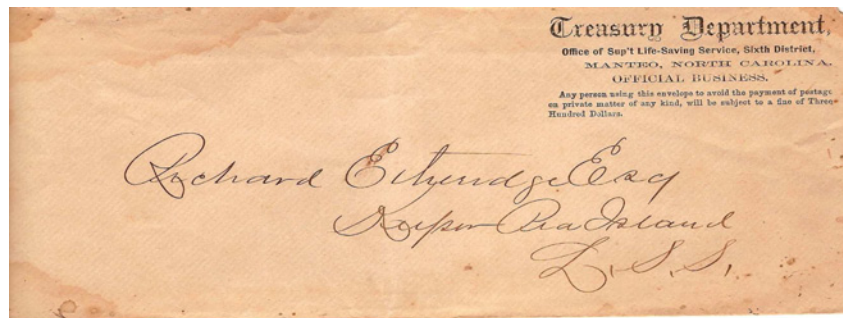 Treasury Department,
Office of Sup't Life-Saving Service, Sixth District,
MANTEO, NORTH CAROLINA.
OFFICIAL BUSINESS.
Any person using this envelope to avoid the payment of postage
on private matter of any kind, will be subject to a fine of Three
Hundred Dollars.
Richard Etheridge Esq
Keeper Pea Island
L. S. S.